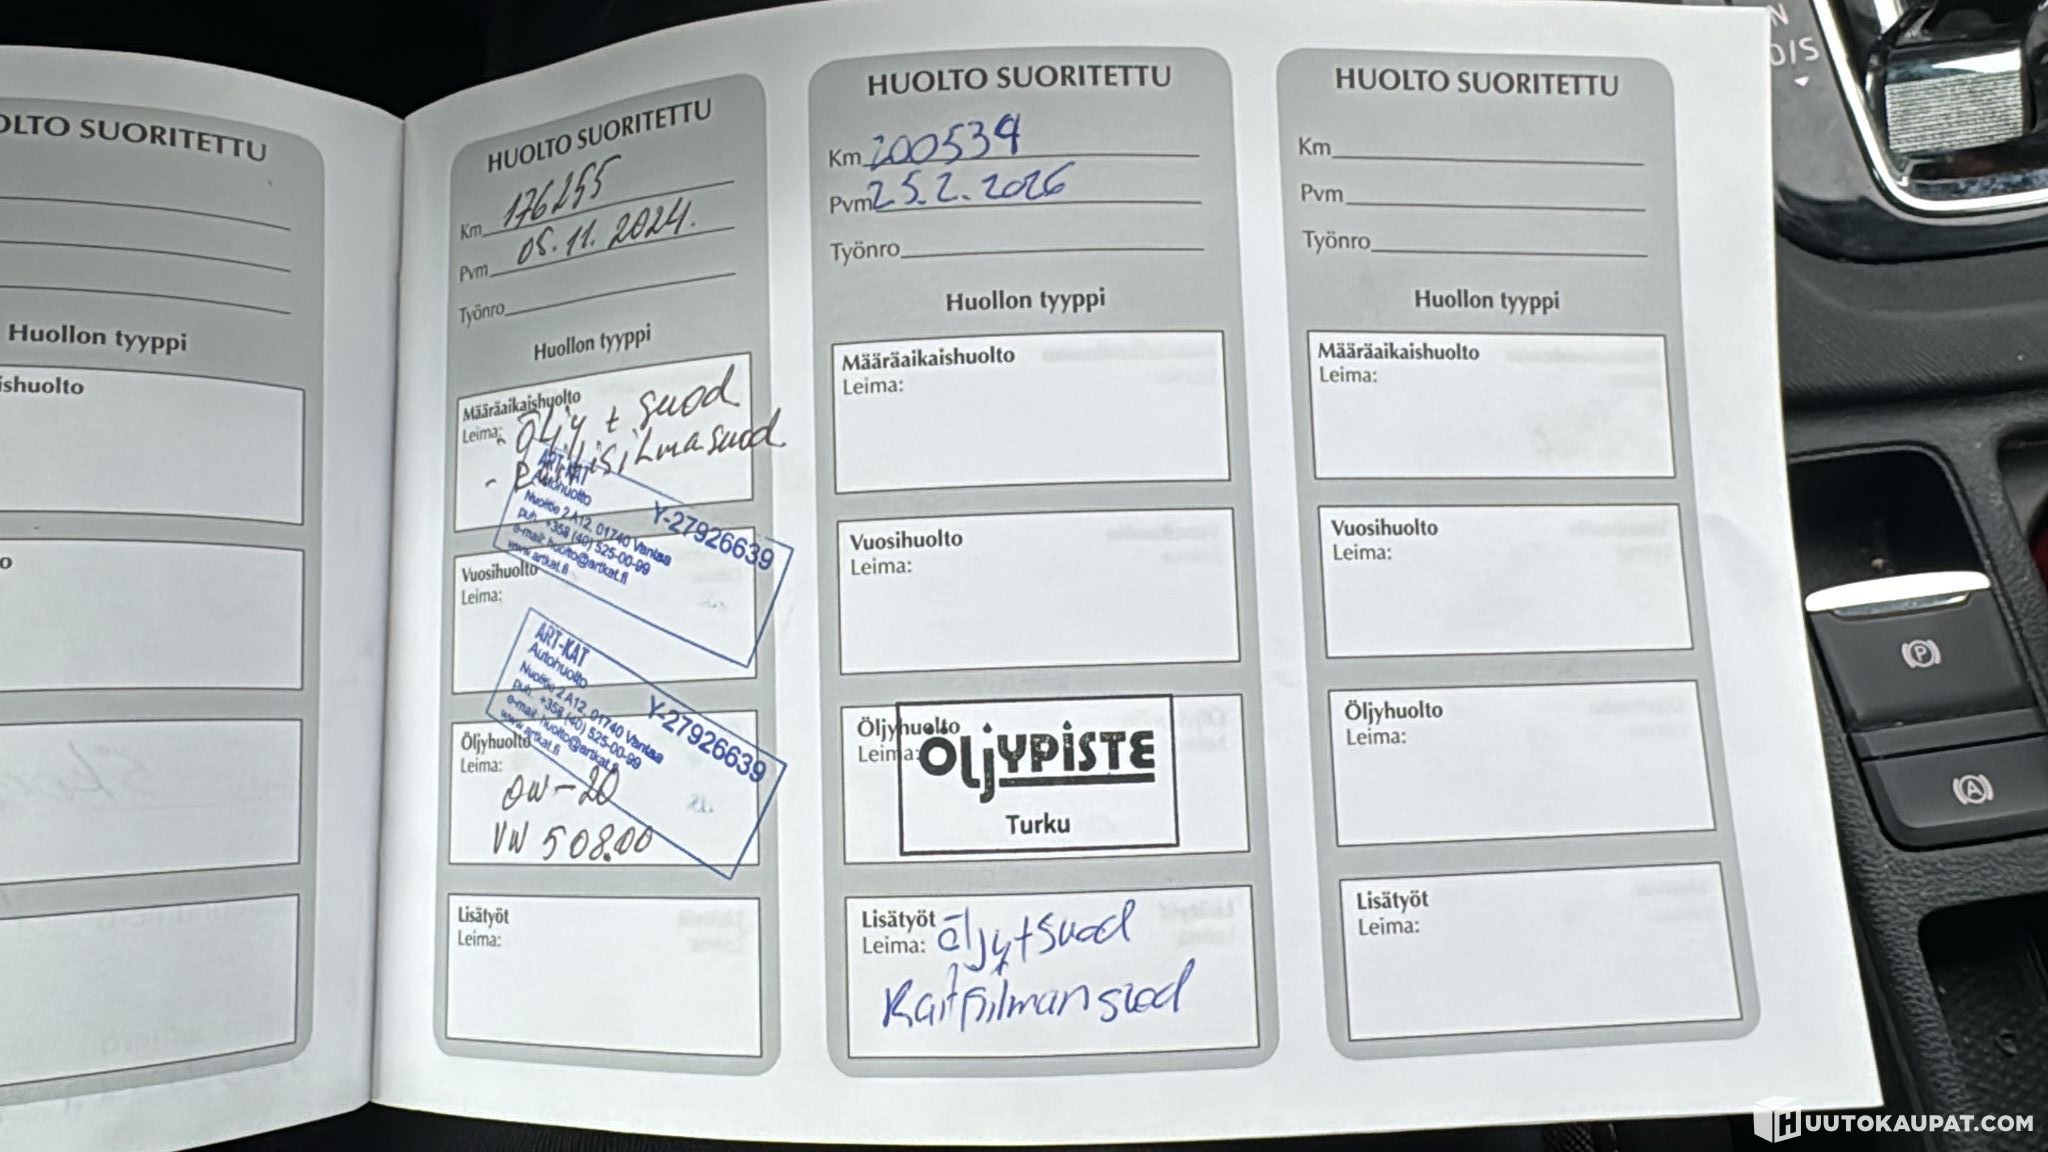 OLTO SUORITETTU
Huollon tyyppi
ishuolto
o
HUOLTO SUORITETTU
Km 176255
Pvm 05.11.2024.
Työnro
Huollon tyyppi
Määräaikaishuolto
Leima: - Öljy + suod
- Raitisilmasuod
ART-KAT
Autohuolto
Nuolitie 2 A12, 01740 Vantaa
puh. +358 (40) 525-00-99
e-mail: huolto@artkat.fi
www.artkat.fi
Y-27926639
Vuosihuolto
Leima:
ART-KAT
Autohuolto
Nuolitie 2 A12, 01740 Vantaa
puh. +358 (40) 525-00-99
e-mail: huolto@artkat.fi
www.artkat.fi
Y-27926639
Öljyhuolto
Leima:
0W-20
VW 508.00
Lisätyöt
Leima:
HUOLTO SUORITETTU
Km 200534
Pvm 25.2.2026
Työnro
Huollon tyyppi
Määräaikaishuolto
Leima:
Vuosihuolto
Leima:
Öljyhuolto
Leima:
ÖLJYPISTE
Turku
Lisätyöt
Leima: Öljy+suod
HUOLTO SUORITETTU
Km
Pvm
Työnro
Huollon tyyppi
Määräaikaishuolto
Leima:
Vuosihuolto
Leima:
Öljyhuolto
Leima:
Lisätyöt
Leima:
N
D/S
P
A
HUUTOKAUPAT.COM